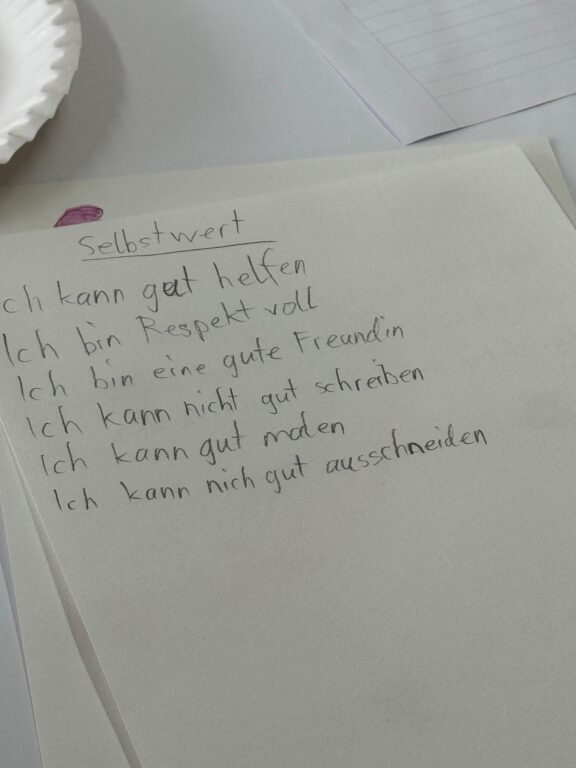 Selbstwert
ch kann gut helfen
Ich bin Respekt voll
Ich bin eine gute Freundin
Ich kann nicht gut schreiben
Ich kann gut malen
Ich kann nich gut ausschneiden